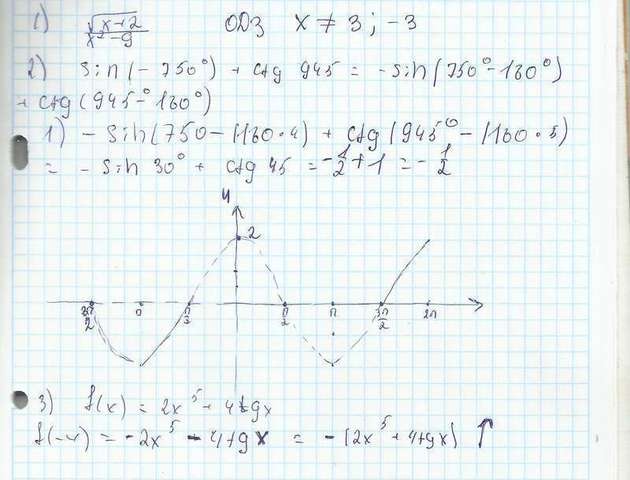 1) √(x+2) / (x² - 9) ОДЗ x ≠ 3 ; -3
2) sin(-750°) + ctg 945 = -sin(750°-180°)
+ ctg(945°-180°)
1) - sin(750-180·4) + ctg(945°-180·5)
= - sin 30° + ctg 45 = -1/2 + 1 = -1/2
y
2
3π/2 π π/2 π/2 π 3π/2 2π
3) f(x) = 2x⁵ + 4tgx
f(-x) = -2x⁵ - 4tgx = -(2x⁵ + 4tgx) ↑